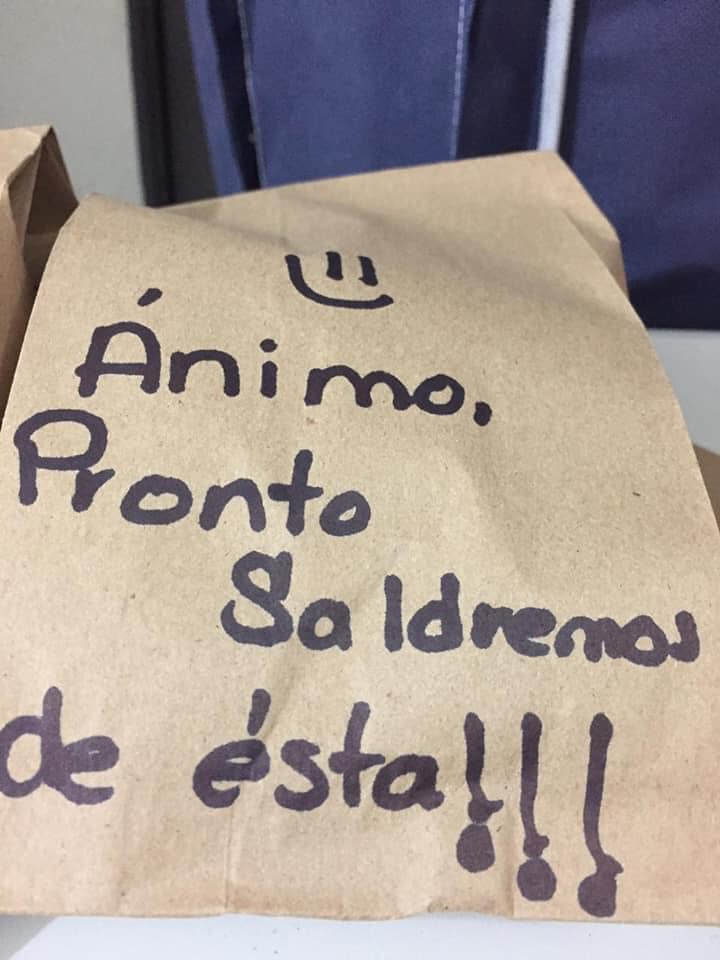 Ánimo,
Pronto
Saldremos
de ésta!!!